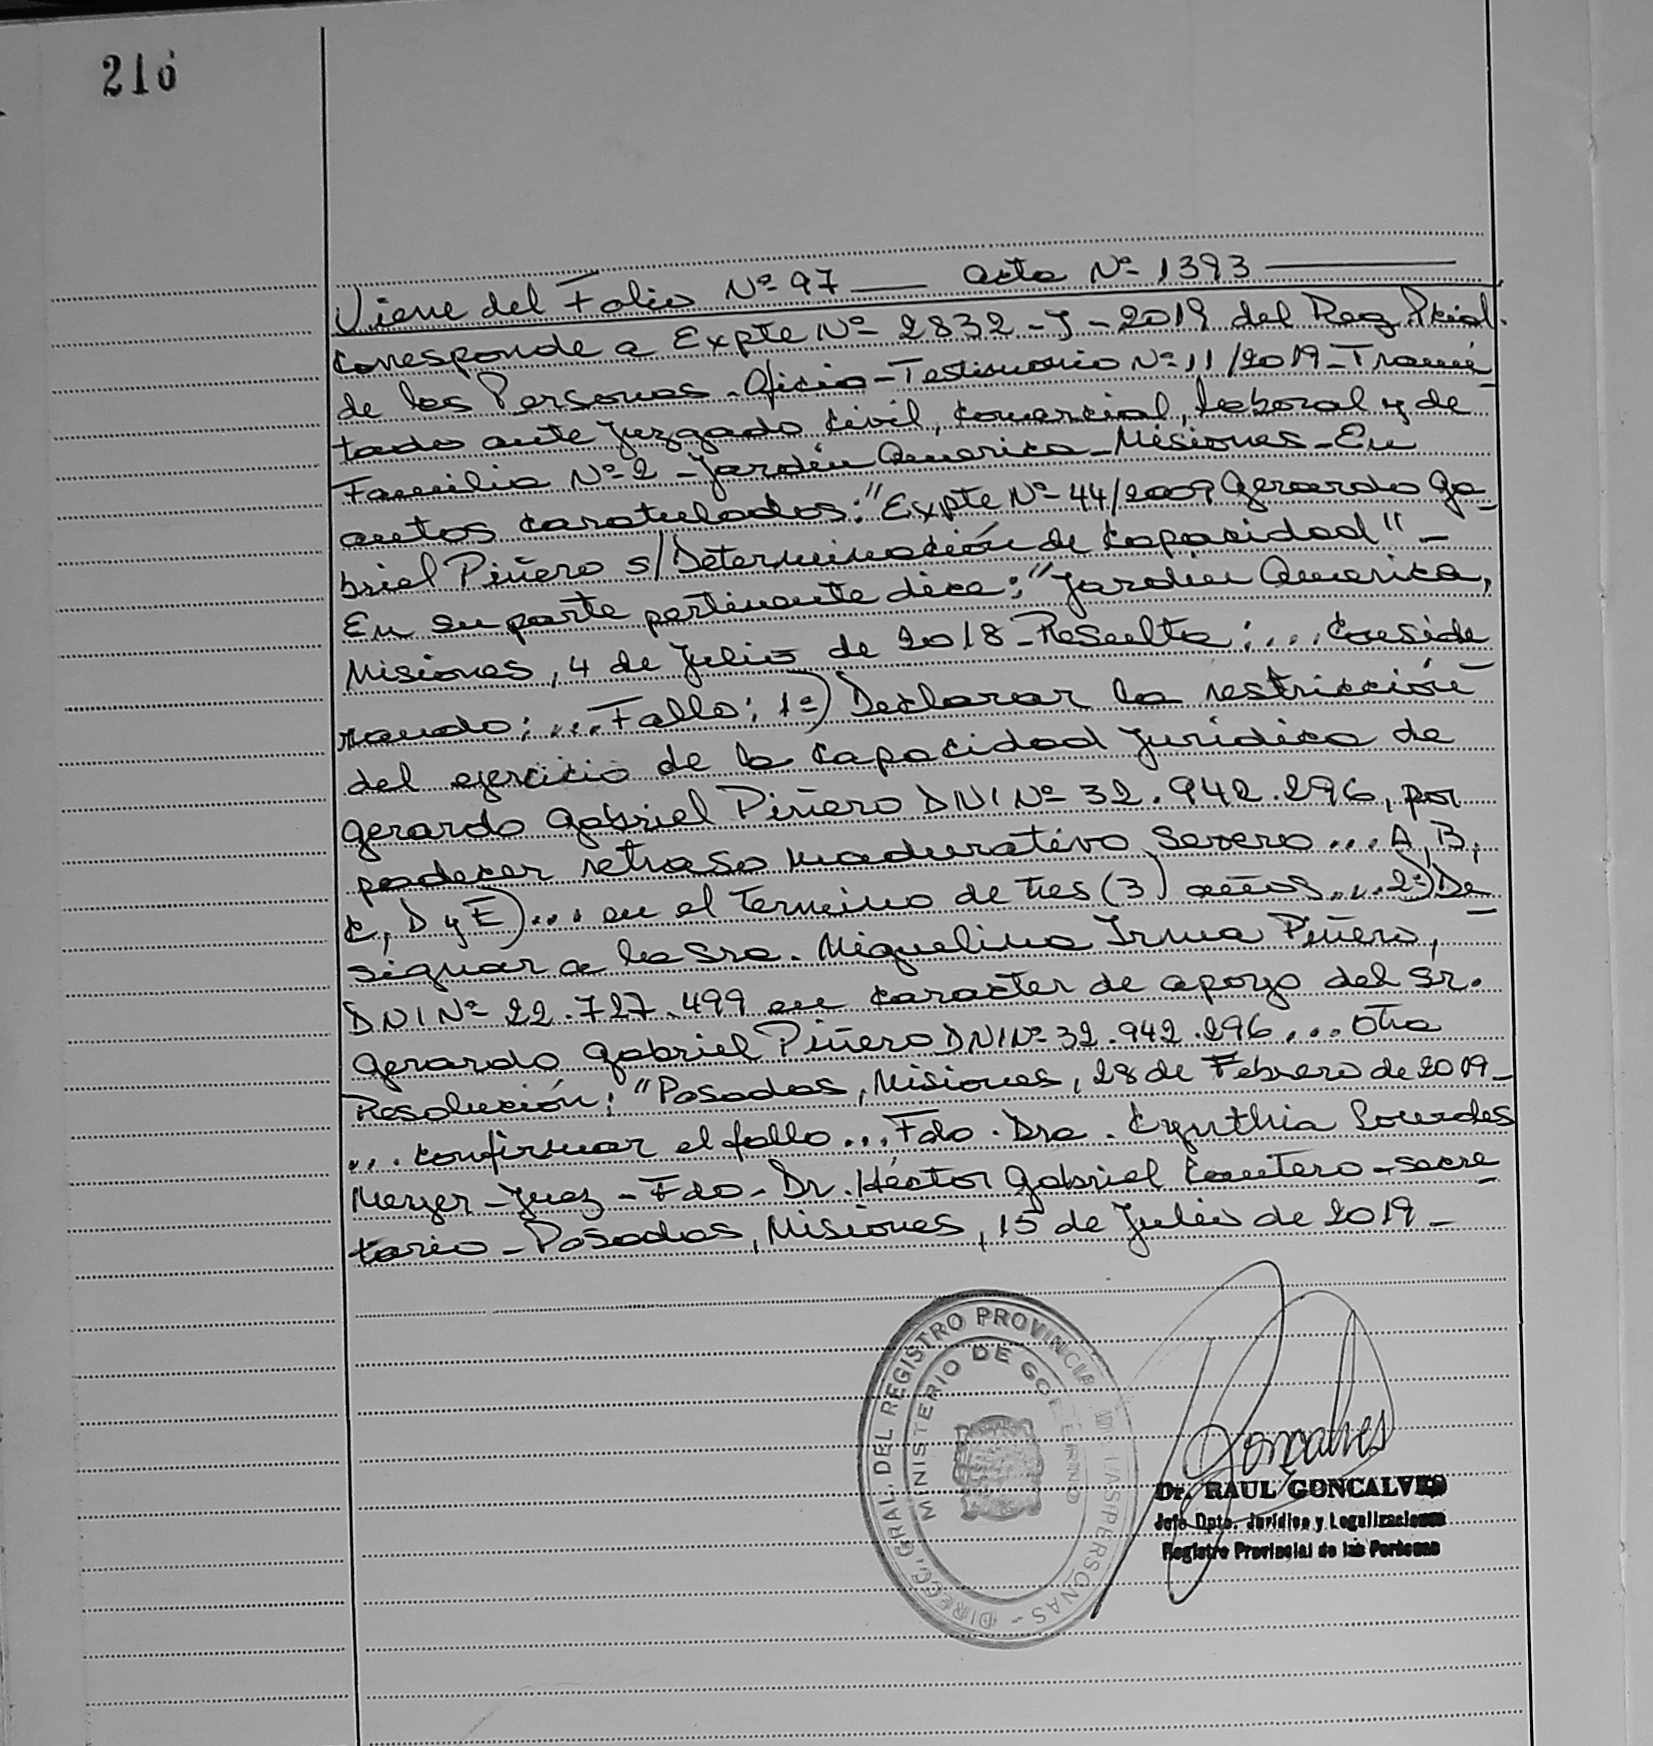 216
Viene del Folio Nº 97 — Acta Nº 1393 —
Corresponde a Expte Nº 2832-J-2019 del Reg. Pcial.
de las Personas. Oficio-Testimonio Nº 11/2019-Trami
tado ante Juzgado Civil, Comercial, Laboral y de
Familia Nº 2 - Jardín America - Misiones - En
autos caratulados: "Expte Nº 44/2009 Gerardo Ga-
briel Piñero s/Determinación de Capacidad" -
En su parte pertinente dice: "Jardín America,
Misiones, 4 de Julio de 2018 - Resulta: ... Conside-
rando: ... Fallo: 1º) Declarar la restricción
del ejercicio de la capacidad Juridica de
Gerardo Gabriel Piñero DNI Nº 32.942.296, por
padecer retraso madurativo severo ... A, B,
C, D y E) ... en el termino de tres (3) años ... 2º) De-
signar a la Sra. Miquelina Irma Piñero,
DNI Nº 22.727.499 en caracter de apoyo del Sr.
Gerardo Gabriel Piñero DNI Nº 32.942.296 ... Otra
Resolución: "Posadas, Misiones, 28 de Febrero de 2019 -
... confirmar el fallo ... Fdo. Dra. Cynthia Lourdes
Meyer - Juez - Fdo - Dr. Héctor Gabriel Cantero - Secre-
tario - Posadas, Misiones, 15 de Julio de 2019 -
DIRECC. GRAL. DEL REGISTRO PROVINCIAL DE LAS PERSONAS -
MINISTERIO DE GOBIERNO
Goncalves
Dr. RAUL GONCALVES
Jefe Dpto. Jurídico y Legalizaciones
Registro Provincial de las Personas